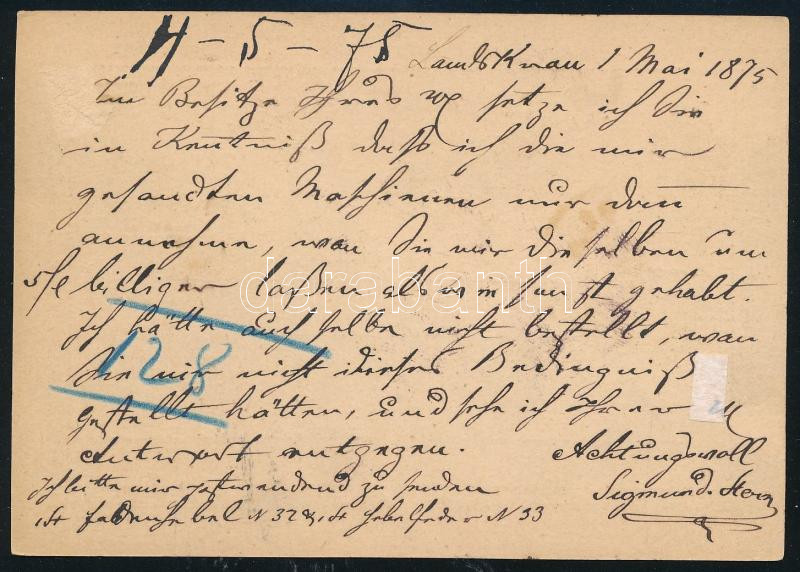 4-5-75
Landskron 1 Mai 1875
Im Besitze Ihres setze ich Sie
in Kentniß daß ich die mir
gesandten Maschienen nur dan
annehme, wan Sie mir dieselben um
5 f billiger laßen als wie sonst gehabt.
Ich hätte auch selbe nicht bestellt, wan
128
Sie mir nicht dieses Bedingniß
gestellt hätten, und sehe ich Ihrer
Antwort entgegen.
Achtungsvoll
Ich bitte mir zu senden
Sigmund
N 32 & N 33
darabanth